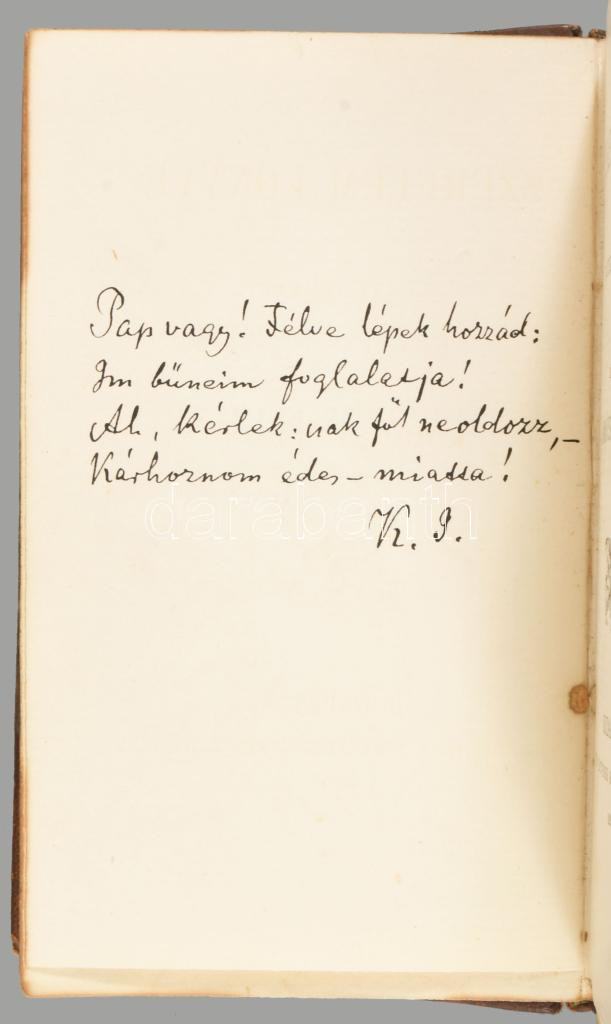 Pap vagy! Félve lépek hozzád:
Im büneim foglalatja!
Ah, kérlek: csak föl ne oldozz, –
Kárhoznom édes – miatta!
K. I.
darabanth